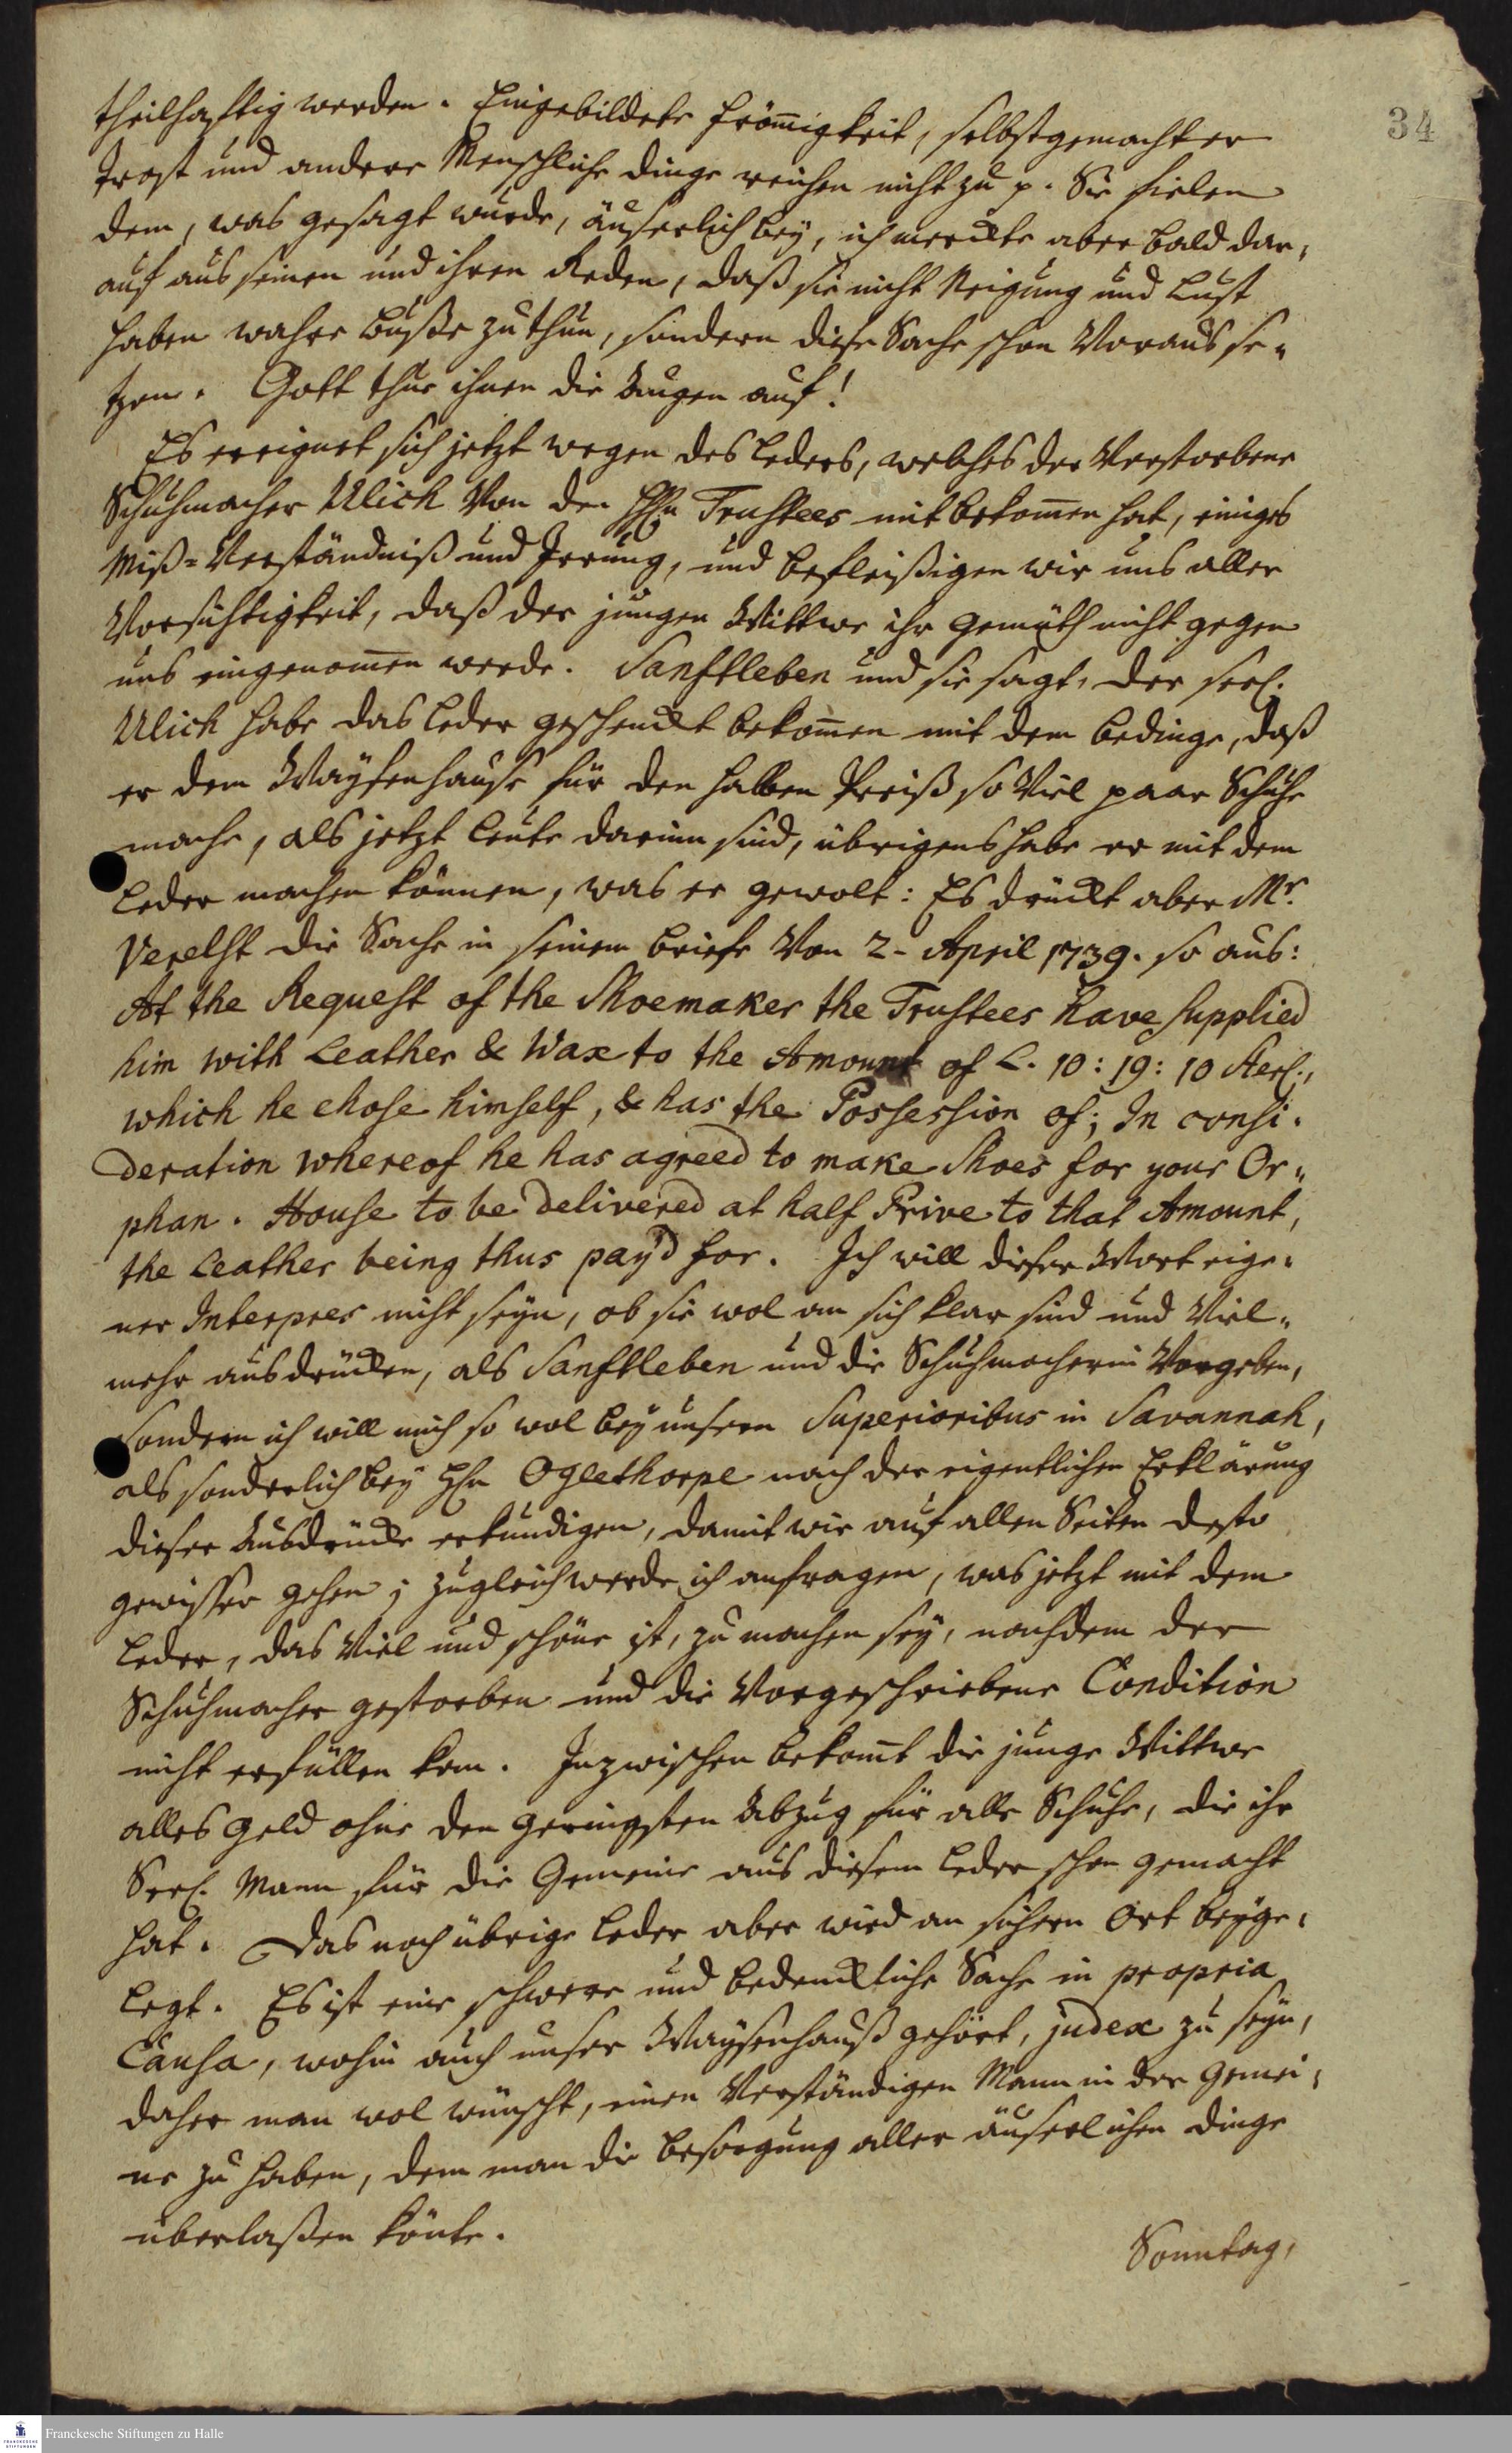 34
theilhafftig werden. Eingebildete Frömigkeit, selbstgemachter
Trost und andere Menschliche dinge reichen nicht zu p. Sie fielen
dem, was gesagt wurde, äuserlich bey, ich merckte aber bald dar,
auf aus seinen und ihren Reden, daß sie nicht Neigung und Lust
haben wahre Buße zu thun, sondern diese Sache schon Voraus se-
tzen. Gott thue ihnen die Augen auf!
Es ereignet sich jetzt wegen des Leders, welches der Verstorbene
Schuhmacher Ulich Von den HHn Trustees mit bekomen hat, einiges
Miß-Verständniß und Irrung, und befleißigen wir uns aller
Vorsichtigkeit, daß der jungen Wittwe ihr Gemüth nicht gegen
uns eingenomen werde. Sanftleben und sie sagt, der seel.
Ulich habe das Leder geschenckt bekomen mit dem bedinge, daß
er dem Waysenhause für den halben Preiß so Viel paar Schuhe
mache, als jetzt Leute darinn sind, übrigens habe er mit dem
Leder machen können, was er gewolt: Es drückt aber Mr.
Verelst die Sache in seinem briefe Von 2- April 1739. so aus:
At the Request of the Shoemaker the Trustees have supplied
him with Leather & Wax to the Amount of L. 10: 19: 10 Sterl.,
which he chose himself, & has the Possession of; In consi-
deration whereof he has agreed to make Shoes for your Or-
phan. House to be delivered at half Prive to that Amount,
the Leather being thus pay'd for. Ich will dieser Wort eige-
ner Interpres nicht seyn, ob sie wol an sich klar sind und Viel-
mehr ausdrücken, als Sanftleben und die Schuhmacherin Vorgeben,
sondern ich will mich so wol bey unsern Superioribus in Savannah,
als sonderlich bey Hn Oglethorpe nach der eigentlichen Erklärung
dieser Ausdrücke erkundigen, damit wir auf allen Seiten desto
gewisser gehen; zugleich werde ich anfragen, was jetzt mit dem
Leder, das Viel und schöne ist, zu machen sey, nachdem der
Schuhmacher gestorben und die Vorgeschriebene Condition
nicht erfüllen kan. Inzwischen bekomt die junge Wittwe
alles Geld ohne den geringsten Abzug für alle Schuhe, die ihr
Seel. Mann für die Gemeine aus diesem Leder schon gemacht
hat. Das noch übrige Leder aber wird an sichern Ort beyge-
legt. Es ist eine schwere und bedenckliche Sache in propria
Causa, wohin auch unser Waysenhauß gehört, judex zu seyn,
daher man wol wünscht, einen Verständigen Mann in der Gemei-
ne zu haben, dem man die besorgung aller äuserlichen dinge
überlaßen könte.
Sonntag,
Franckesche Stiftungen zu Halle